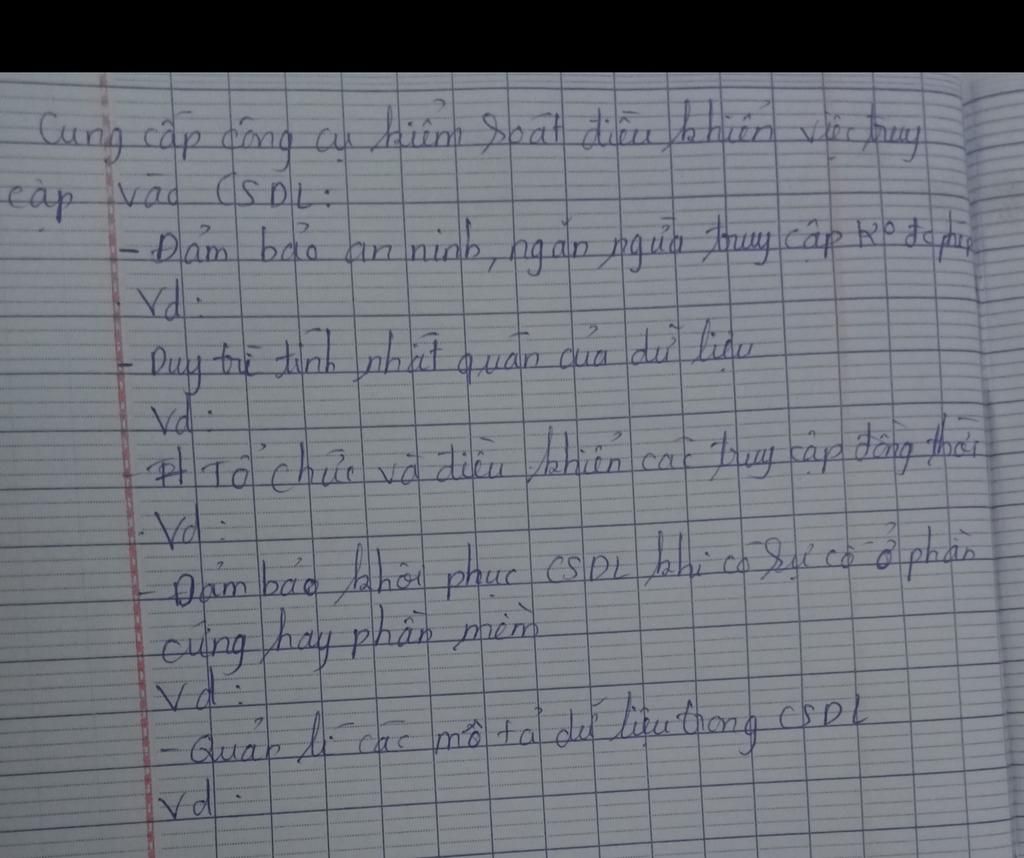 Cung cấp công cụ kiểm soát điều khiển việc truy
cập vào CSDL:
- Đảm bảo an ninh, ngăn ngừa truy cập ko đc phép
Vd:
- Duy trì tính nhất quán của dữ liệu
Vd:
- Tổ chức và điều khiển các truy cập đồng thời
Vd:
- Đảm bảo khôi phục CSDL khi có sự cố ở phần
cứng hay phần mềm
Vd:
- Quản lí các mô tả dữ liệu trong CSDL
Vd: